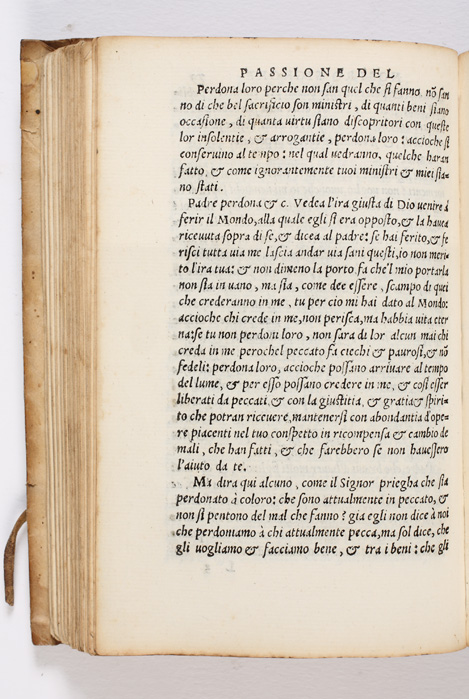 PASSIONE DEL
Perdona loro perche non san quel che si fanno. nõ san
no di che bel sacrificio son ministri, di quanti beni siano
occasione, di quanta uirtu siano discopritori con queste
lor insolentie, & arrogantie, perdona loro: accioche si
conseruino al tempo: nel qual uedranno, quelche haran
fatto, & come ignorantemente tuoi ministri & miei sia-
no stati.
Padre perdona & c. Vedea l'ira giusta di Dio uenire à
ferir il Mondo, alla quale egli si era opposto, & la hauea
riceuuta sopra di se, & dicea al padre: se hai ferito, & fe
risci tutta uia me lascia andar uia sani questi, io non meri-
to l'ira tua: & non dimeno la porto fa che'l mio portarla
non sia in uano, ma sia, come dee essere, scampo di quei
che crederanno in me, tu per cio mi hai dato al Mondo:
accioche chi crede in me, non perisca, ma habbia uita eter
na: se tu non perdoni loro, non sara di lor alcun mai chi
creda in me peroche l peccato fa ciechi & paurosi, & nõ
fedeli: perdona loro, accioche possano arriuare al tempo
del lume, & per esso possano credere in me, & cosi esser
liberati da peccati, & con la giustitia, & gratia & spiri-
to che potran riceuere, mantenersi con abondantia d'ope-
re piacenti nel tuo conspetto in ricompensa & cambio de
mali, che han fatti, & che farebbero se non hauessero
l'aiuto da te.
Ma dira qui alcuno, come il Signor priegha che sia
perdonato à coloro: che sono attualmente in peccato, &
non si pentono del mal che fanno? gia egli non dice à noi
che perdoniamo à chi attualmente pecca, ma sol dice, che
gli uogliamo & facciamo bene, & tra i beni: che gli